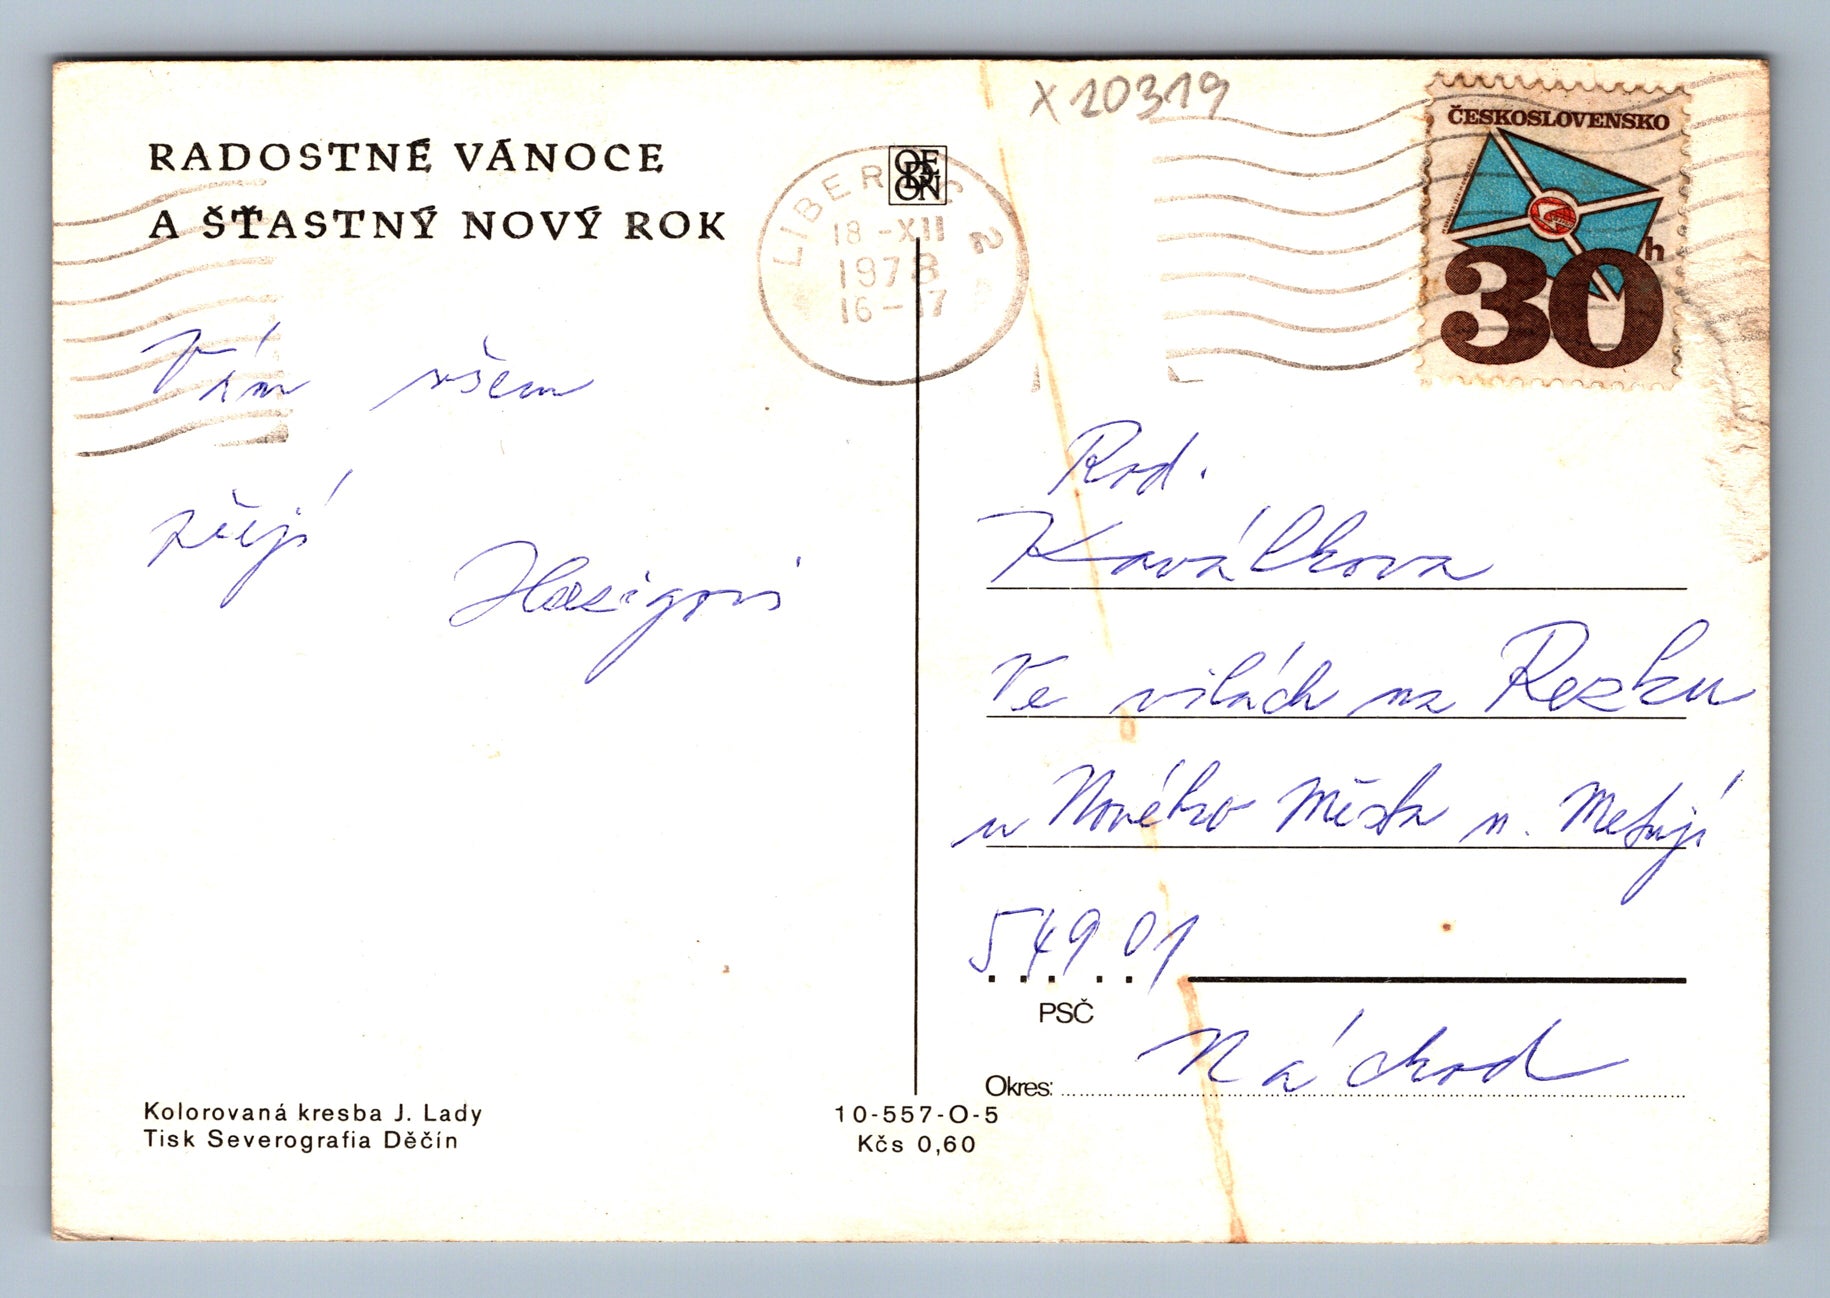 RADOSTNÉ VÁNOCE
A ŠŤASTNÝ NOVÝ ROK
Vám všem
přejí
Kolorovaná kresba J. Lady
Tisk Severografia Děčín
ODEON
LIBEREC 2
18-XII
1978
16-17
10-557-O-5
Kčs 0,60
X 20319
ČESKOSLOVENSKO
30h
Rod.
Kaválkova
Ve vilách na Rezku
u Nového Města n. Metují
549 01
PSČ
Okres: Náchod